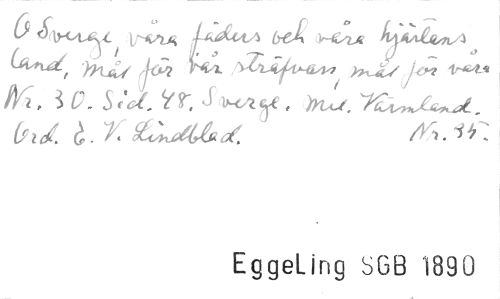 O Sverge, våra fäders och våra hjärtans
land, mål för vår sträfvan, mål för våra
Nr. 30. Sid. 48. Sverge. Mel. Värmland.
Ord. E. V. Lindblad. Nr. 35.
EggeLing SGB 1890